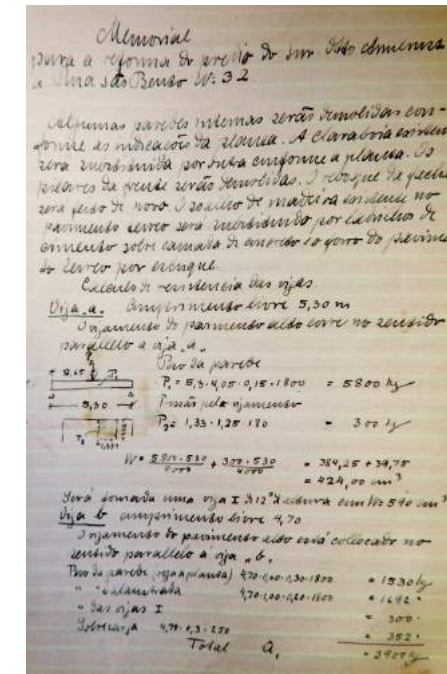 Memorial
para a reforma do predio do snr. Otto
a Rua São Bento Nº 32
Algumas paredes internas serão demolidas con-
forme as indicações da planta. A claraboia existen
será substituida por outra conforme a planta. Os
pilares da frente serão demolidos. O reboque da facha
será feito de novo. O soalho de madeira existente no
pavimento terreo será substituido por ladrilhos de
cimento sobre camada de concreto e o forro do pavime
do terreo por estuque.
Calculo de resistencia das vigas
Viga a. Comprimento livre 5,30 m
O vigamento do pavimento alto corre no sentido
parallelo a viga a.
Peso da parede
P₁ = 5,3·4,05·0,15·1800 = 5800 kg
5,30
pelo vigamento
P₂ = 1,33·1,25·180 = 300 kg
W = 5800·530/8000 + 300·530/4000 = 384,25 + 39,75
= 424,00 cm³
Será tomada uma viga I de 12" d'altura com W = 590 cm³
Viga b comprimento livre 4,70
O vigamento do pavimento alto está collocado no
sentido parallelo a viga "b".
Peso da parede (veja a planta) 4,70· ·0,30·1800 = 1530 kg
" " 4,70· ·0,20·1800 = 1692 "
" das vigas I = 300 "
Sobrecarga 4,70·0,3·250 = 352 "
Total Q₁ = 3900 kg